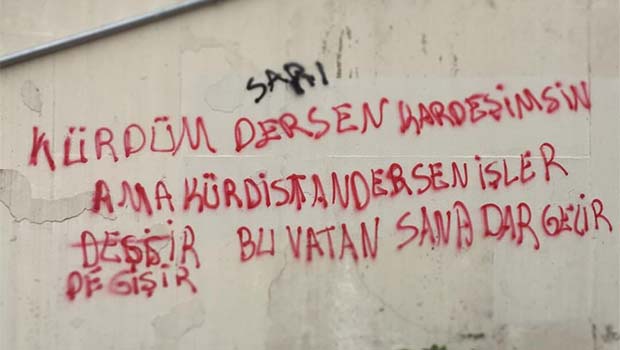 SARI
KÜRDÜM DERSEN KARDEŞİMSİN
AMA KÜRDİSTANDERSEN İŞLER
DEŞİŞİR BU VATAN SANA DAR GELİR
DEGİŞİR